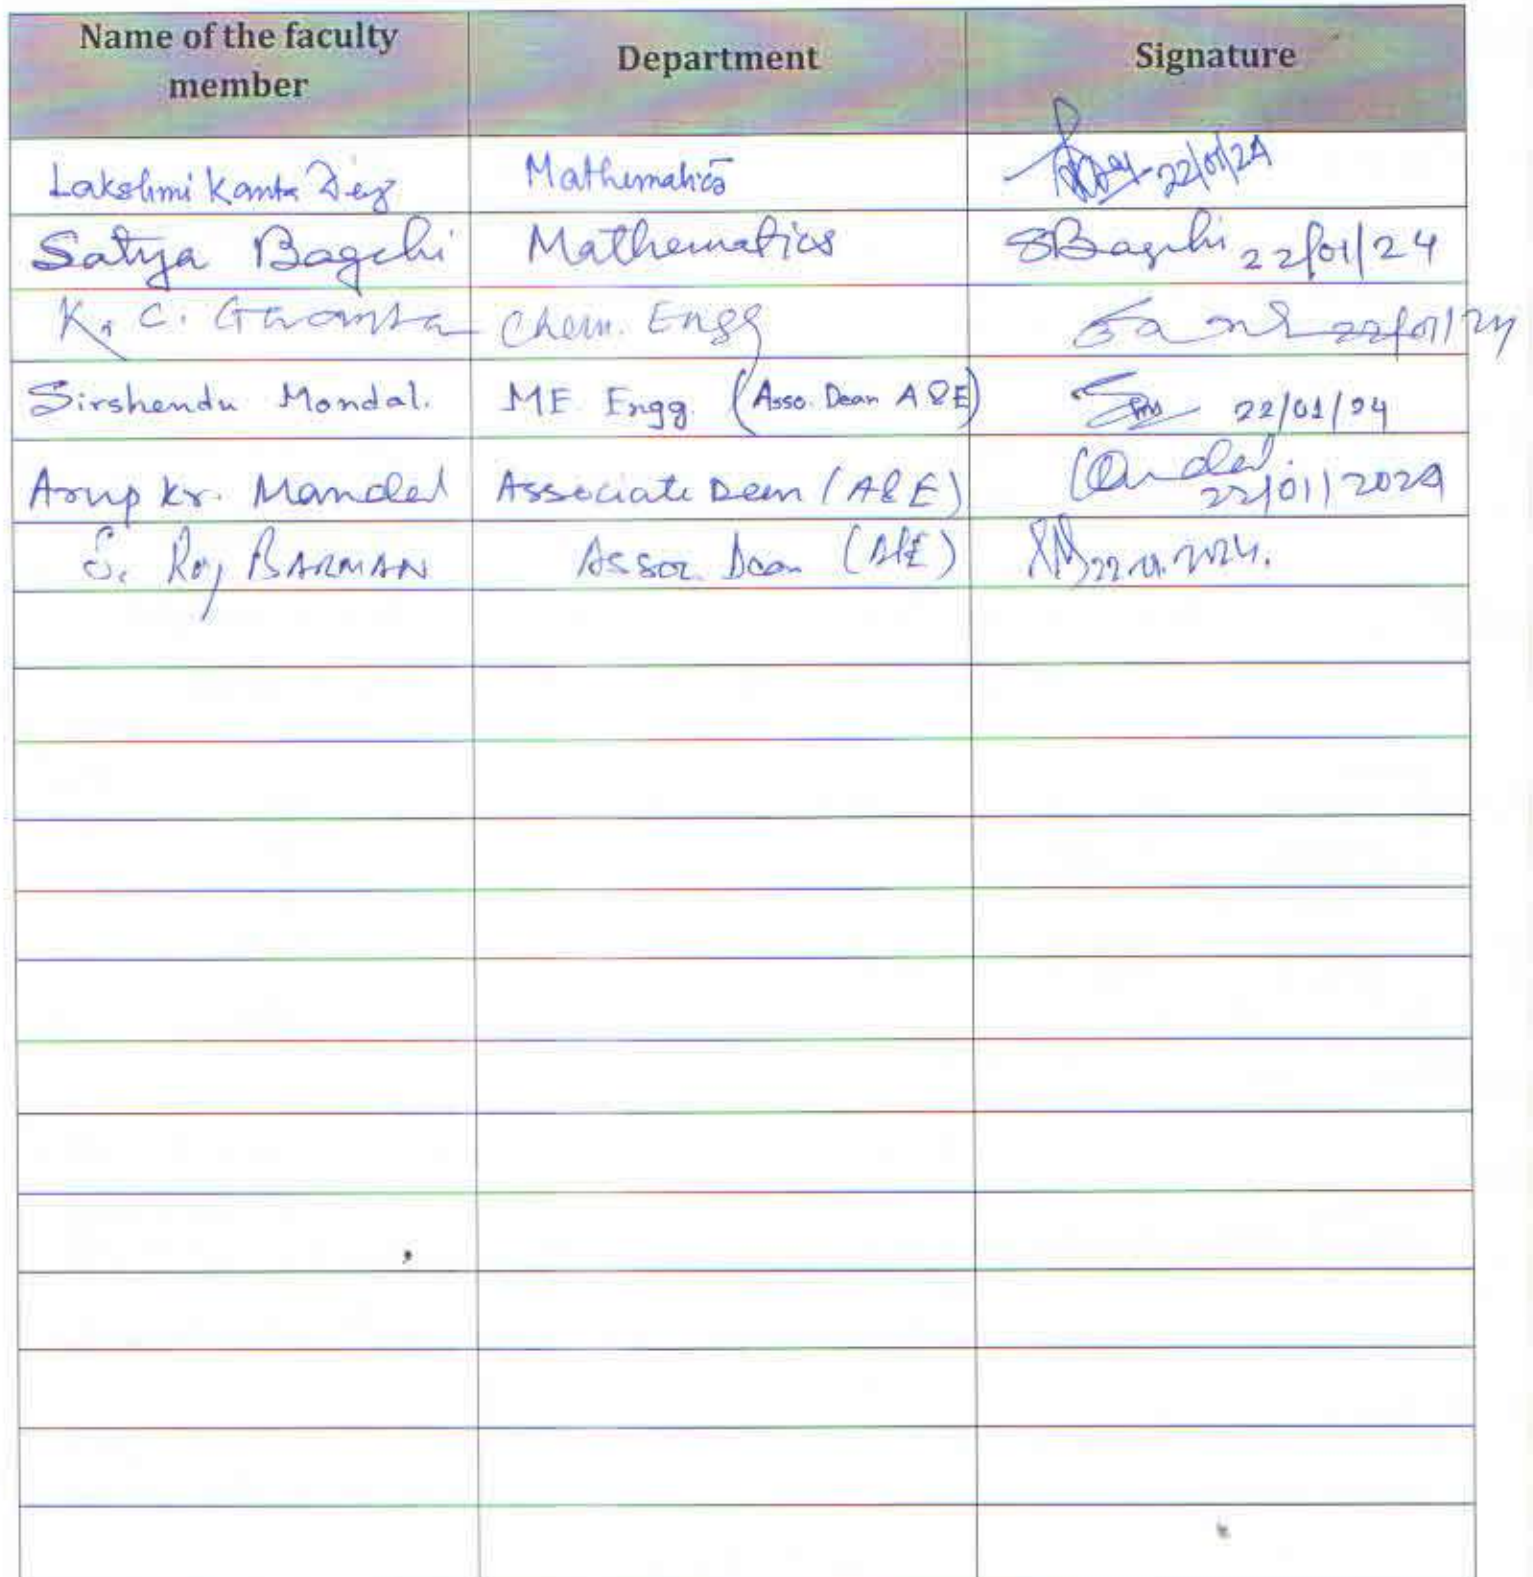 Name of the faculty member Department Signature
Lakshmi Kanta Dey Mathematics 22/01/24
Satya Bagchi Mathematics SBagchi 22/01/24
K. C. Chem. Engg 22/01/24
Sirshendu Mondal. ME Engg. (Asso. Dean A&E) 22/01/24
Arup Kr. Mandal Associate Dean (A&E) 22/01/2024
S. Roy BARMAN Assoc. Dean (A&E) 22.01.2024.